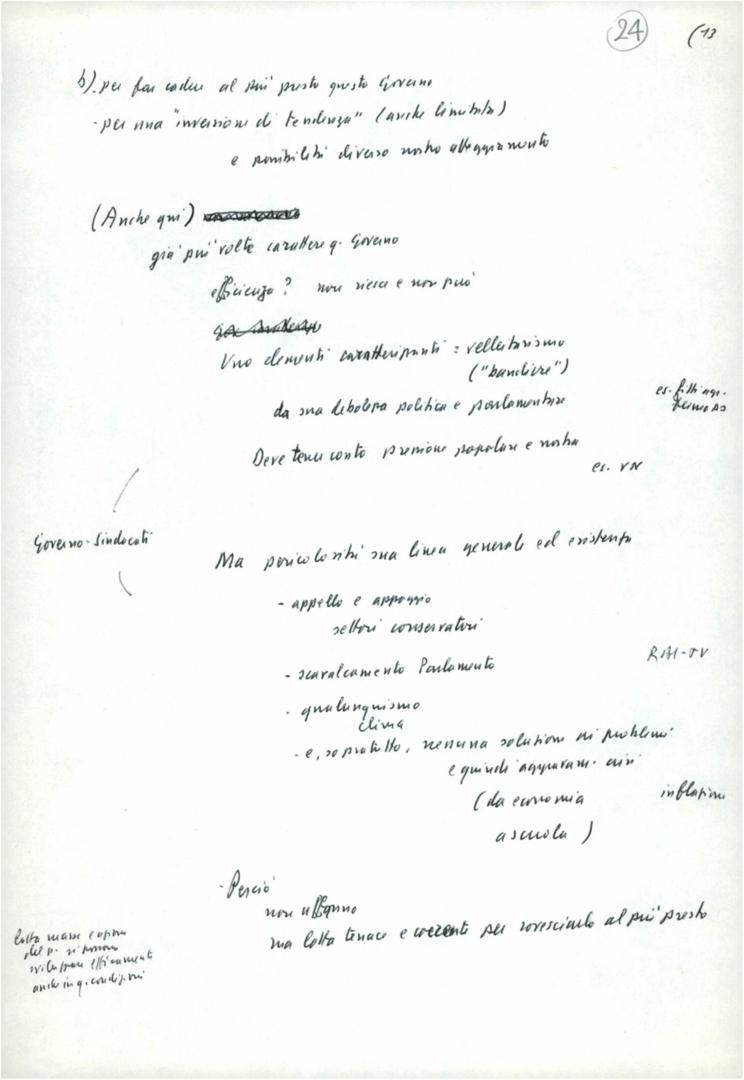 24
(13
b) per far cadere al più presto questo Governo
- per una "inversione di tendenza" (anche limitata)
e possibilità diverso nostro atteggiamento
(Anche qui)
già più volte carattere q. Governo
efficienza? non riesce e non può
Uno elementi caratterizzanti = velleitarismo
("bandiere")
da sua debolezza politica e parlamentare
es. fitti agr.
fermo
Deve tener conto pressione popolare e nostra
es. VN
Governo-Sindacati
Ma pericolosità sua linea generale ed esistenza
- appello e appoggio
settori conservatori
- scavalcamento Parlamento
RAI-TV
- qualunquismo
clima
- e, sopratutto, nessuna soluzione ai problemi
e quindi aggravam. crisi
(da economia
inflazione
a scuola)
- Perciò
non affanno
ma lotta tenace e coerente per rovesciarlo al più presto
lotta masse e azione
del p. si possono
sviluppare efficacemente
anche in q. condizioni